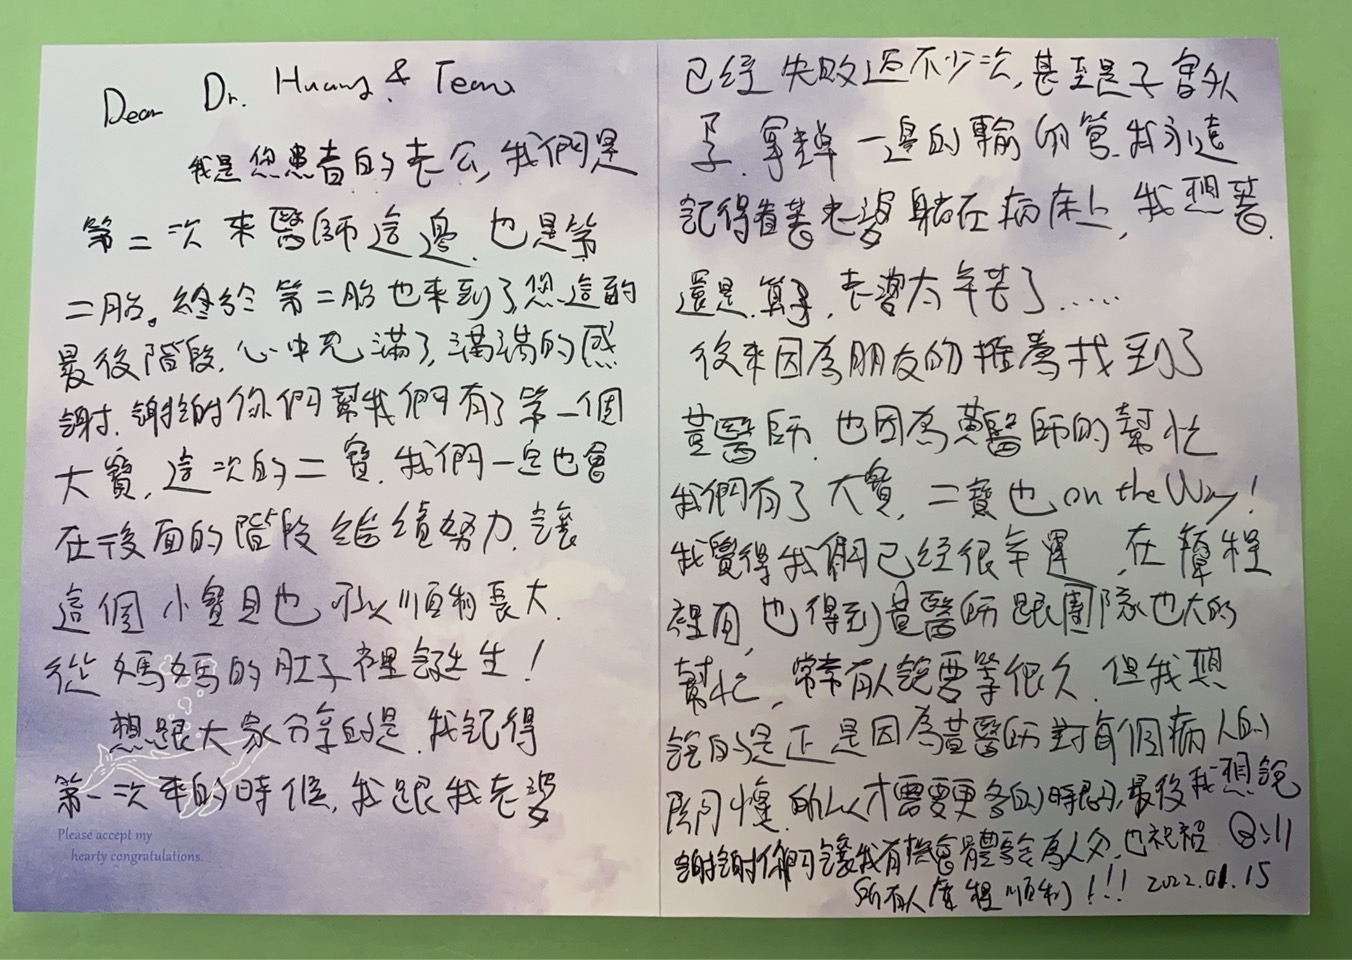 Dear Dr. Huang & Team
我是您患者的老公, 我們是
第二次來醫師這邊. 也是第
二胎。終於第二胎也來到了您這的
最後階段, 心中充滿了, 滿滿的感
謝. 謝謝你們幫我們有了第一個
大寶, 這次的二寶. 我們一定也會
在後面的階段繼續努力. 讓
這個小寶貝也可以順利長大.
從媽媽的肚子裡誕生!
想跟大家分享的是. 我記得
第一次來的時候, 我跟我老婆
Please accept my
hearty congratulations.
已經失敗過不少次, 甚至是子宮外
孕. 拿掉一邊的輸卵管. 我永遠
記得看著老婆躺在病床上, 我想著.
還是算了, 老婆太辛苦了......
後來因為朋友的推薦找到了
黃醫師. 也因為黃醫師的幫忙
我們有了大寶, 二寶也 on the way!
我覺得我們已經很幸運, 在療程
裡面, 也得到黃醫師跟團隊也大的
幫忙, 常常有人說要等很久. 但我想
說的是正是因為黃醫師對每個病人的
關懷. 所以才需要更多的時間, 最後我想說
謝謝你們讓我有機會體驗為人父, 也祝福
所有人療程順利!!! 2022.01.15